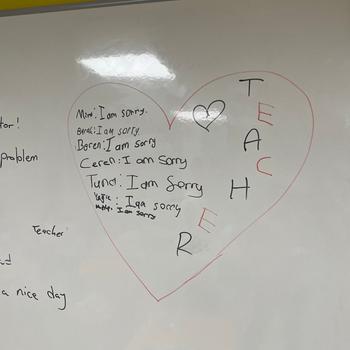 tor!
problem
Teacher
a nice day
I am sorry.
I am sorry
Beren: I am sorry
Ceren: I am sorry
Tuna: I am sorry
: I am sorry
: I am sorry
T
E
A
C
H
E
R